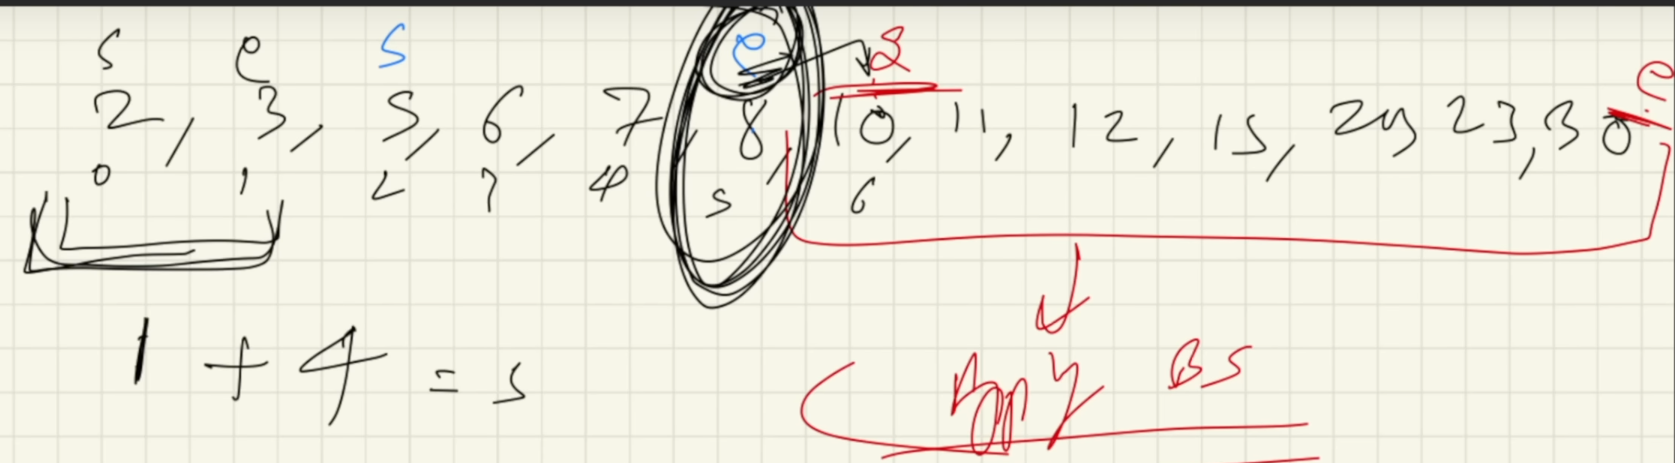 S e S e S e
2, 3, 5, 6, 7, 8, 10, 11, 12, 15, 20, 23, 30
0 1 2 3 4 5 6
1 + 4 = 5
Apply BS